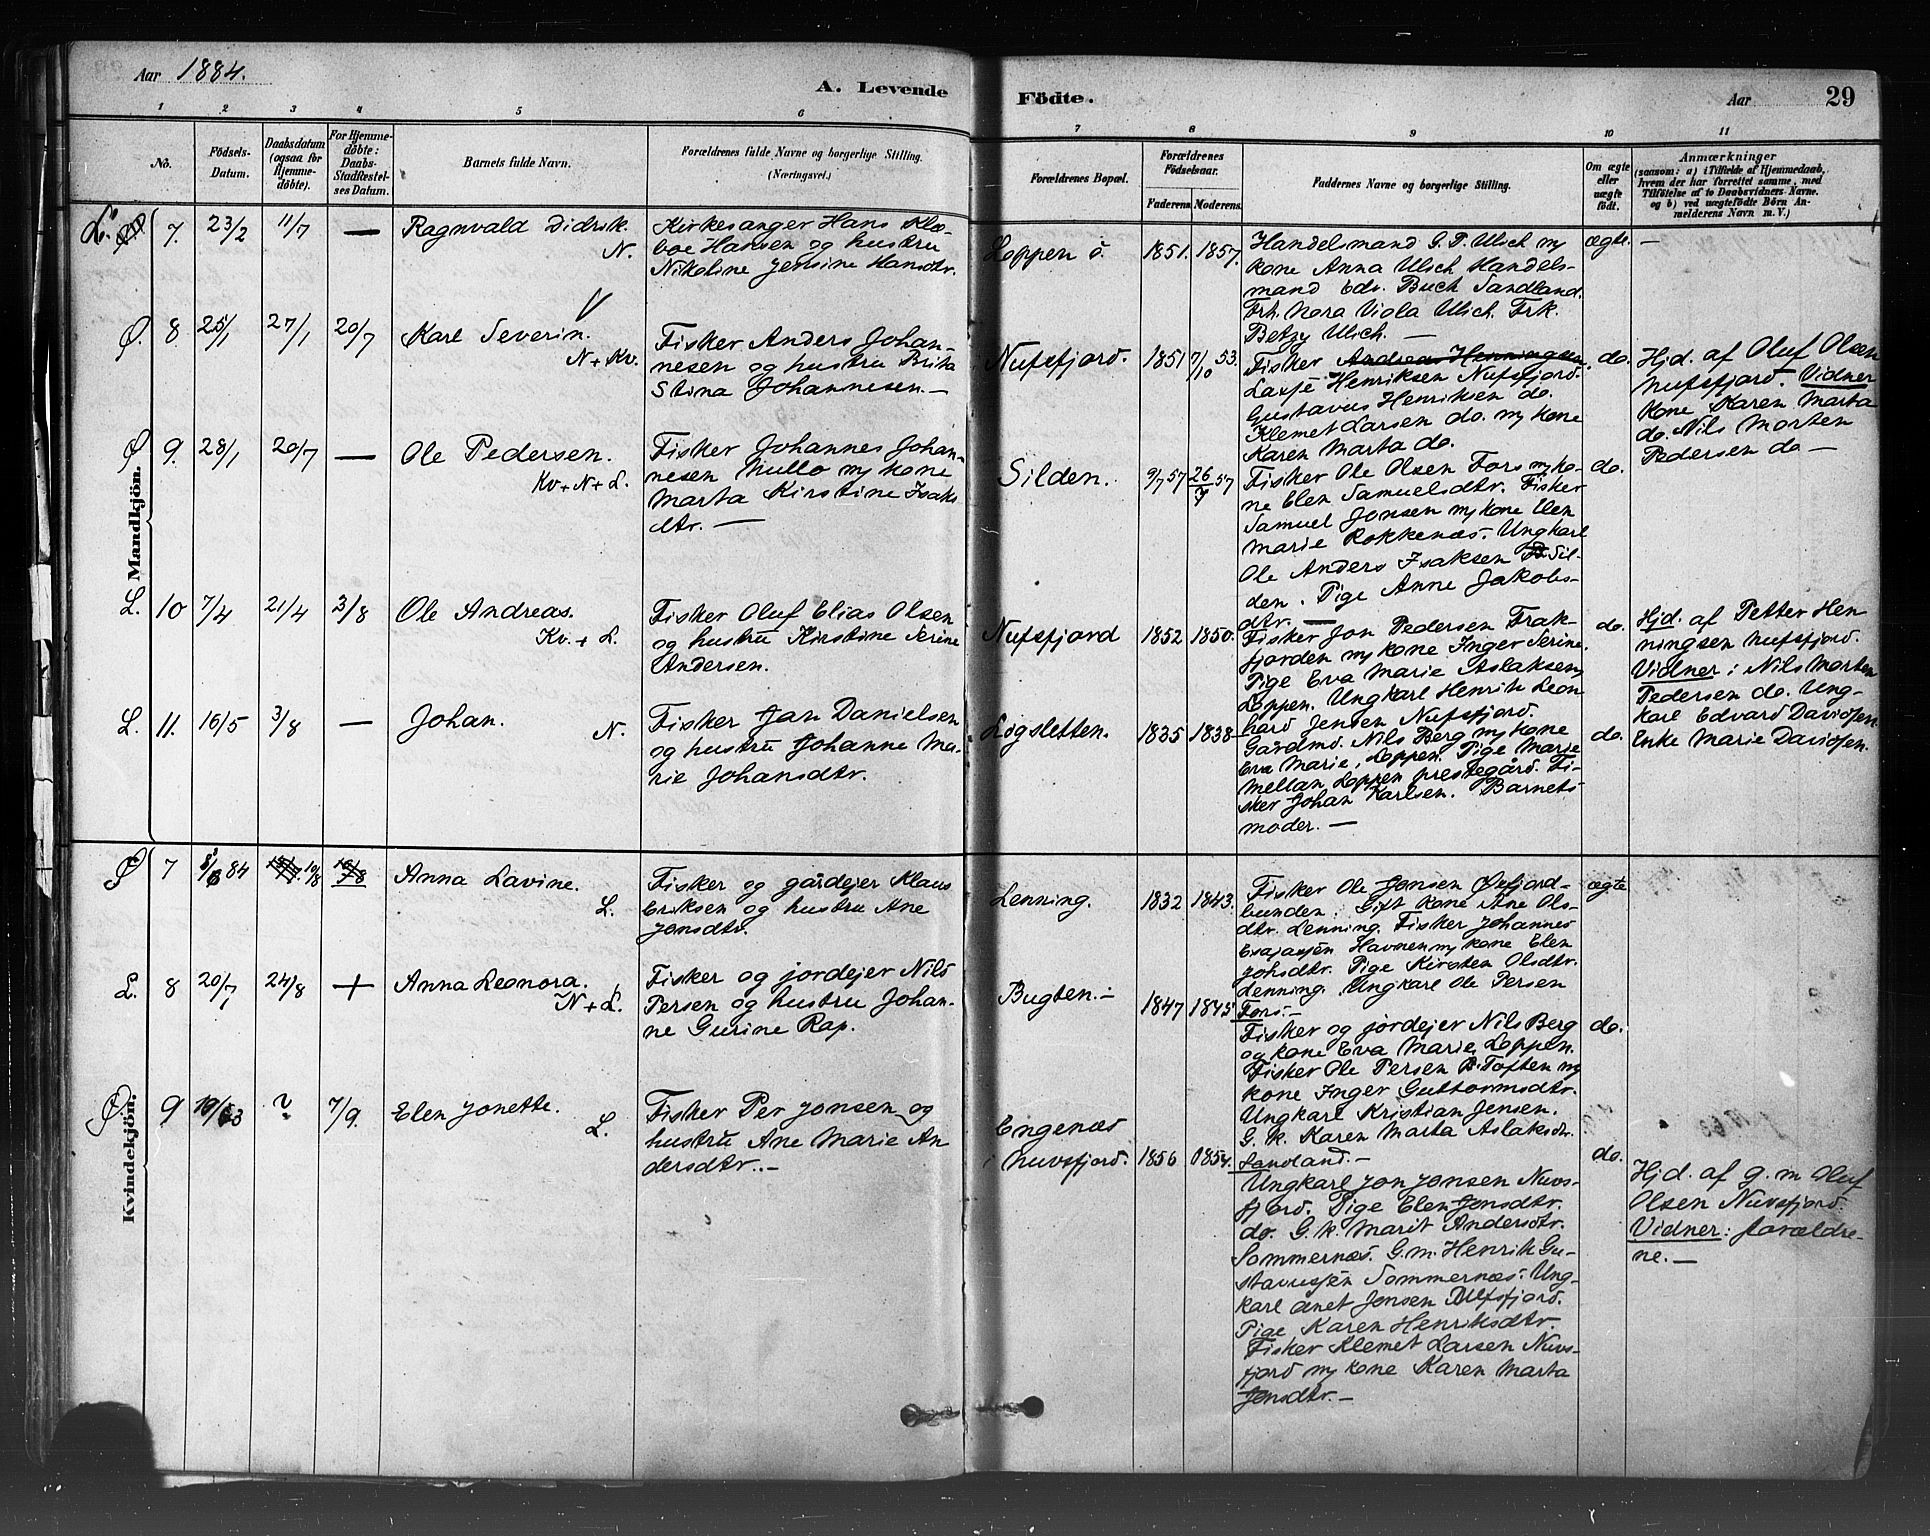 Aar 1884.
A. Levende
Födte.
Aar
29
1 2 3 4 5 6
7 8 9 10 11
No.
Födsels-
Datum.
Daabsdatum
(ogsaa for
Hjemme-
døbte).
For Hjemme-
døbte:
Daabs-
Stadfæstel-
ses Datum.
Barnets fulde Navn.
Forældrenes fulde Navne og borgerlige Stilling.
(Næringsvei.)
Forældrenes Bopæl.
Forældrenes
Födselsaar.
Faderens. Moderens.
Faddernes Navne og borgerlige Stilling.
Om ægte
eller
uægte
født.
Anmærkninger
(saasom: a) i Tilfælde af Hjemmedaab,
hvem der har forrettet samme, med
Tilføielse af to Daabsvidners Navne.
og b) ved uægtefødte Börn An-
melderens Navn m. V.)
Mandkjön.
L. 7. 23/2 11/7 —
Ragnvald Didrik.
N.
Kirkesanger Hans Klæ-
boe Hansen og hustru
Nikoline Jensine Hansdtr.
Loppen ö 1851. 1857.
Handelsmand G. P. Ulich m/
kone Anna Ulich Handels-
mand Edv. Buch Sandland.
Frk. Nora Viola Ulich. Frk.
Betzy Ulich. —
ægte. —
Ø. 8 25/1 27/1 20/7
Karl Severin.
N + Kv.
Fisker Anders Johan-
nesen og hustru Brita
Stina Johannesen. —
Nufsfjord. 1851 7/10 53.
Fisker Andreas Henningsen
Lasse Henriksen Nufsfjord.
Gustavus Henriksen do.
Klemet Larsen do. m/ kone
Karen Marta do.
do.
Hjd. af Oluf Olsen
Nufsfjord. Vidner
Kone Karen Marta
do. Nils Morten
Pedersen do —
Ø 9. 28/1 20/7 —
Ole Pedersen.
Kv + N + L.
Fisker Johannes Johan-
nesen Hullo m/ kone
Marta Kirstine Isaks
dtr. —
Silden. 9/7 57 26/7 57
Fisker Ole Olsen Fors m/ ko-
ne Elen Samuelsdtr. Fisker
Samuel Jonsen m/ kone Elen
Marie Rokkenæs. Ungkarl
Ole Anders Isaksen Sil-
den. Pige Anne Jakobs-
dtr. —
do.
L. 10 7/4 21/4 3/8
Ole Andreas.
Kv. + L.
Fisker Oluf Elias Olsen
og hustru Kirstine Serine
Andersen.
Nufsfjord 1852 1850.
Fisker Jon Pedersen Frak-
fjorden m/ kone Inger Serine.
Pige Eva Marie Aslaksen
Loppen. Ungkarl Henrik Leon
hard Jensen Nufsfjord.
do.
Hjd. af Petter Hen-
ningsen Nufsfjord.
Vidner: Nils Morten
Pedersen do. Ung-
karl Edvard Davidsen.
Enke Marie Davidsen.
L. 11. 16/5 3/8 —
Johan.
N.
Fisker Jan Danielsen
og hustru Johanne Ma-
rie Johansdtr.
Løgsletten. 1835 1838
Gårdmd. Nils Berg m/ kone
Eva Marie, Loppen. Pige Marie
Mellan, Loppen prestegård. Fi-
sker Johan Karlsen. Barnets
moder. —
do.
Kvindekjön.
Ø 7 8/6 84 10/8
Anna Lavine.
L.
Fisker og gårdejer Klaus
Eriksen og hustru Ane
Jonsdtr.
Lenning. 1832 1843.
Fisker Ole Jonsen Øxfjord-
bunden. Gift kone Ane Ols-
dtr. Lenning. Fisker Johannes
Esajassen Havnen m/ kone Elen
Johsdtr. Pige Kirsten Olsdtr.
Lenning. Ungkarl Ole Persen
Fors. —
ægte
L. 8 20/7 24/8 +
Anna Leonora.
N + L.
Fisker og jordejer Nils
Persen og hustru Johan-
ne Gurine Rap.
Bugten. — 1847 1845
Fisker og jordejer Nils Berg
og kone Eva Marie, Loppen.
Fisker Ole Persen Toften m/
kone Inger Guttormsdtr.
Ungkarl Kristian Jensen.
G. k. Karen Marta Aslaksdtr.
Sandland. —
do.
Ø 9 ? 7/9.
Elen Jonette.
L.
Fisker Per Jonsen og
hustru Ane Marie An
dersdtr. —
Engenæs
i Nuvsfjord. 1856 1854.
Ungkarl Jon Jonsen Nuvs-
fjord. Pige Elen Jonsdtr.
do. G. k. Marit Andersdtr.
Sommernæs. G. m. Henrik Gu-
stavussen Sommernæs. Ung-
karl Jonsen Nufsfjord.
Pige Karen Henriksdtr.
Fisker Klemet Larsen Nuvs-
fjord m/ kone Karen Marta
Jonsdtr. —
do.
Hjd. af g. m. Oluf
Olsen Nuvsfjord.
Vidner: forældre-
ne. —